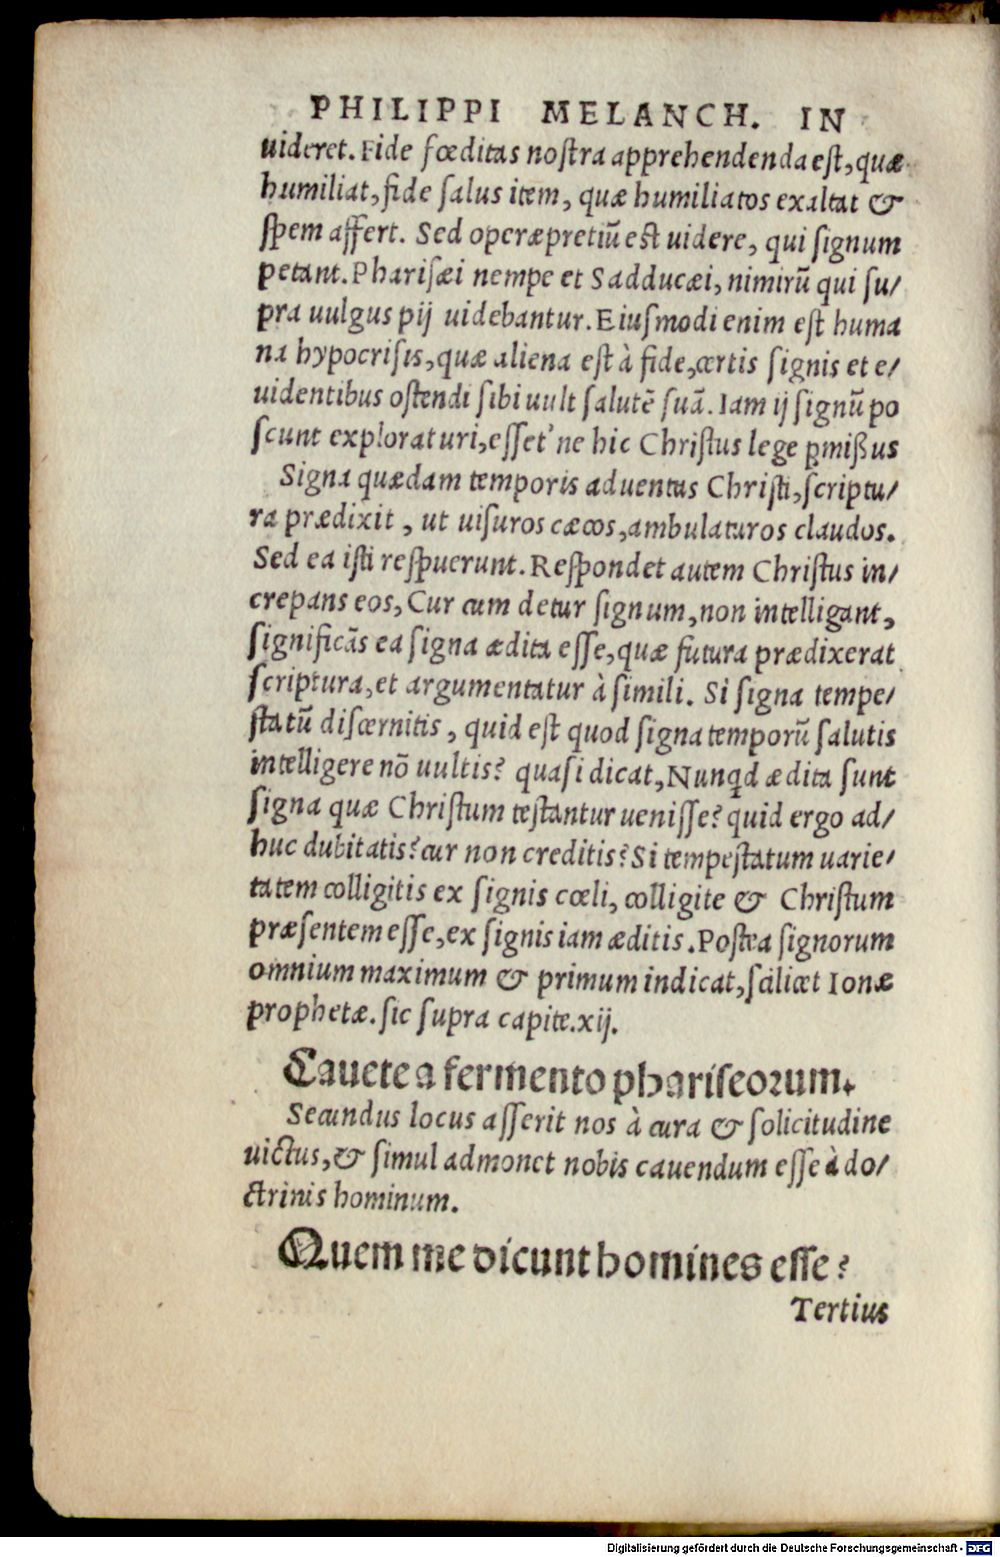 PHILIPPI MELANCH. IN
uideret. Fide fœditas noſtra apprehendenda eſt, quæ
humiliat, fide ſalus item, quæ humiliatos exaltat &
ſpem affert. Sed operæpretiū eſt uidere, qui ſignum
petant. Phariſæi nempe et Sadducæi, nimirū qui ſu/
pra uulgus pij uidebantur. Eiuſmodi enim eſt huma
na hypocriſis, quæ aliena eſt à fide, certis ſignis et e/
uidentibus oſtendi ſibi uult ſalutē ſuā. Iam ij ſignū po
ſcunt exploraturi, eſſet'ne hic Chriſtus lege ꝓmiſſus
Signa quædam temporis aduentus Chriſti, ſcriptu/
ra prædixit, ut uiſuros cæcos, ambulaturos claudos.
Sed ea iſti reſpuerunt. Reſpondet autem Chriſtus in/
crepans eos, Cur cum detur ſignum, non intelligant,
ſignificās ea ſigna ædita eſſe, quæ futura prædixerat
ſcriptura, et argumentatur à ſimili. Si ſigna tempe/
ſtatū diſcernitis, quid eſt quod ſigna temporū ſalutis
intelligere nō uultis? quaſi dicat, Nunꝗd ædita ſunt
ſigna quæ Chriſtum teſtantur ueniſſe? quid ergo ad/
huc dubitatis? cur non creditis? Si tempeſtatum uarie/
tatem colligitis ex ſignis cœli, colligite & Chriſtum
præſentem eſſe, ex ſignis iam æditis. Poſtea ſignorum
omnium maximum & primum indicat, ſcilicet Ionæ
prophetæ. ſic ſupra capite. xij.
Cauete a fermento phariſeoꝛum.
Secundus locus aſſerit nos à cura & ſolicitudine
uictus, & ſimul admonet nobis cauendum eſſe à do/
ctrinis hominum.
Quem me dicunt homines eſſe?
Tertius
Digitalisierung gefördert durch die Deutsche Forschungsgemeinschaft - DFG